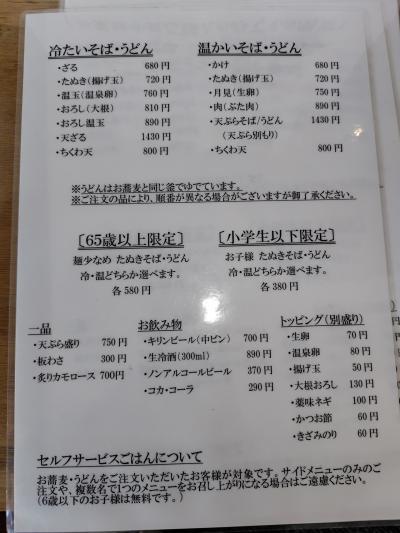 冷たいそば・うどん
・ざる 680円
・たぬき(揚げ玉) 720円
・温玉(温泉卵) 760円
・おろし(大根) 810円
・おろし温玉 890円
・天ざる 1430円
・ちくわ天 800円
温かいそば・うどん
・かけ 680円
・たぬき(揚げ玉) 720円
・月見(生卵) 750円
・肉(ぶた肉) 890円
・天ぷらそば/うどん 1430円
(天ぷら別もり)
・ちくわ天 800円
※うどんはお蕎麦と同じ釜でゆでています。
※ご注文の品により、順番が異なる場合がございますが御了承ください。
〔65歳以上限定〕
麺少なめ たぬきそば・うどん
冷・温どちらか選べます。
各580円
〔小学生以下限定〕
お子様 たぬきそば・うどん
冷・温どちらか選べます。
各380円
一品
・天ぷら盛り 750円
・板わさ 300円
・炙りカモロース 700円
お飲み物
・キリンビール(中ビン) 700円
・生冷酒(300ml) 890円
・ノンアルコールビール 370円
・コカ・コーラ 290円
トッピング(別盛り)
・生卵 70円
・温泉卵 80円
・揚げ玉 50円
・大根おろし 130円
・薬味ネギ 100円
・かつお節 60円
・きざみのり 60円
セルフサービスごはんについて
お蕎麦・うどんをご注文いただいたお客様が対象です。サイドメニューのみのご
注文や、複数名で1つのメニューをお召し上がりになる場合はご遠慮ください。
(6歳以下のお子様は無料です。)